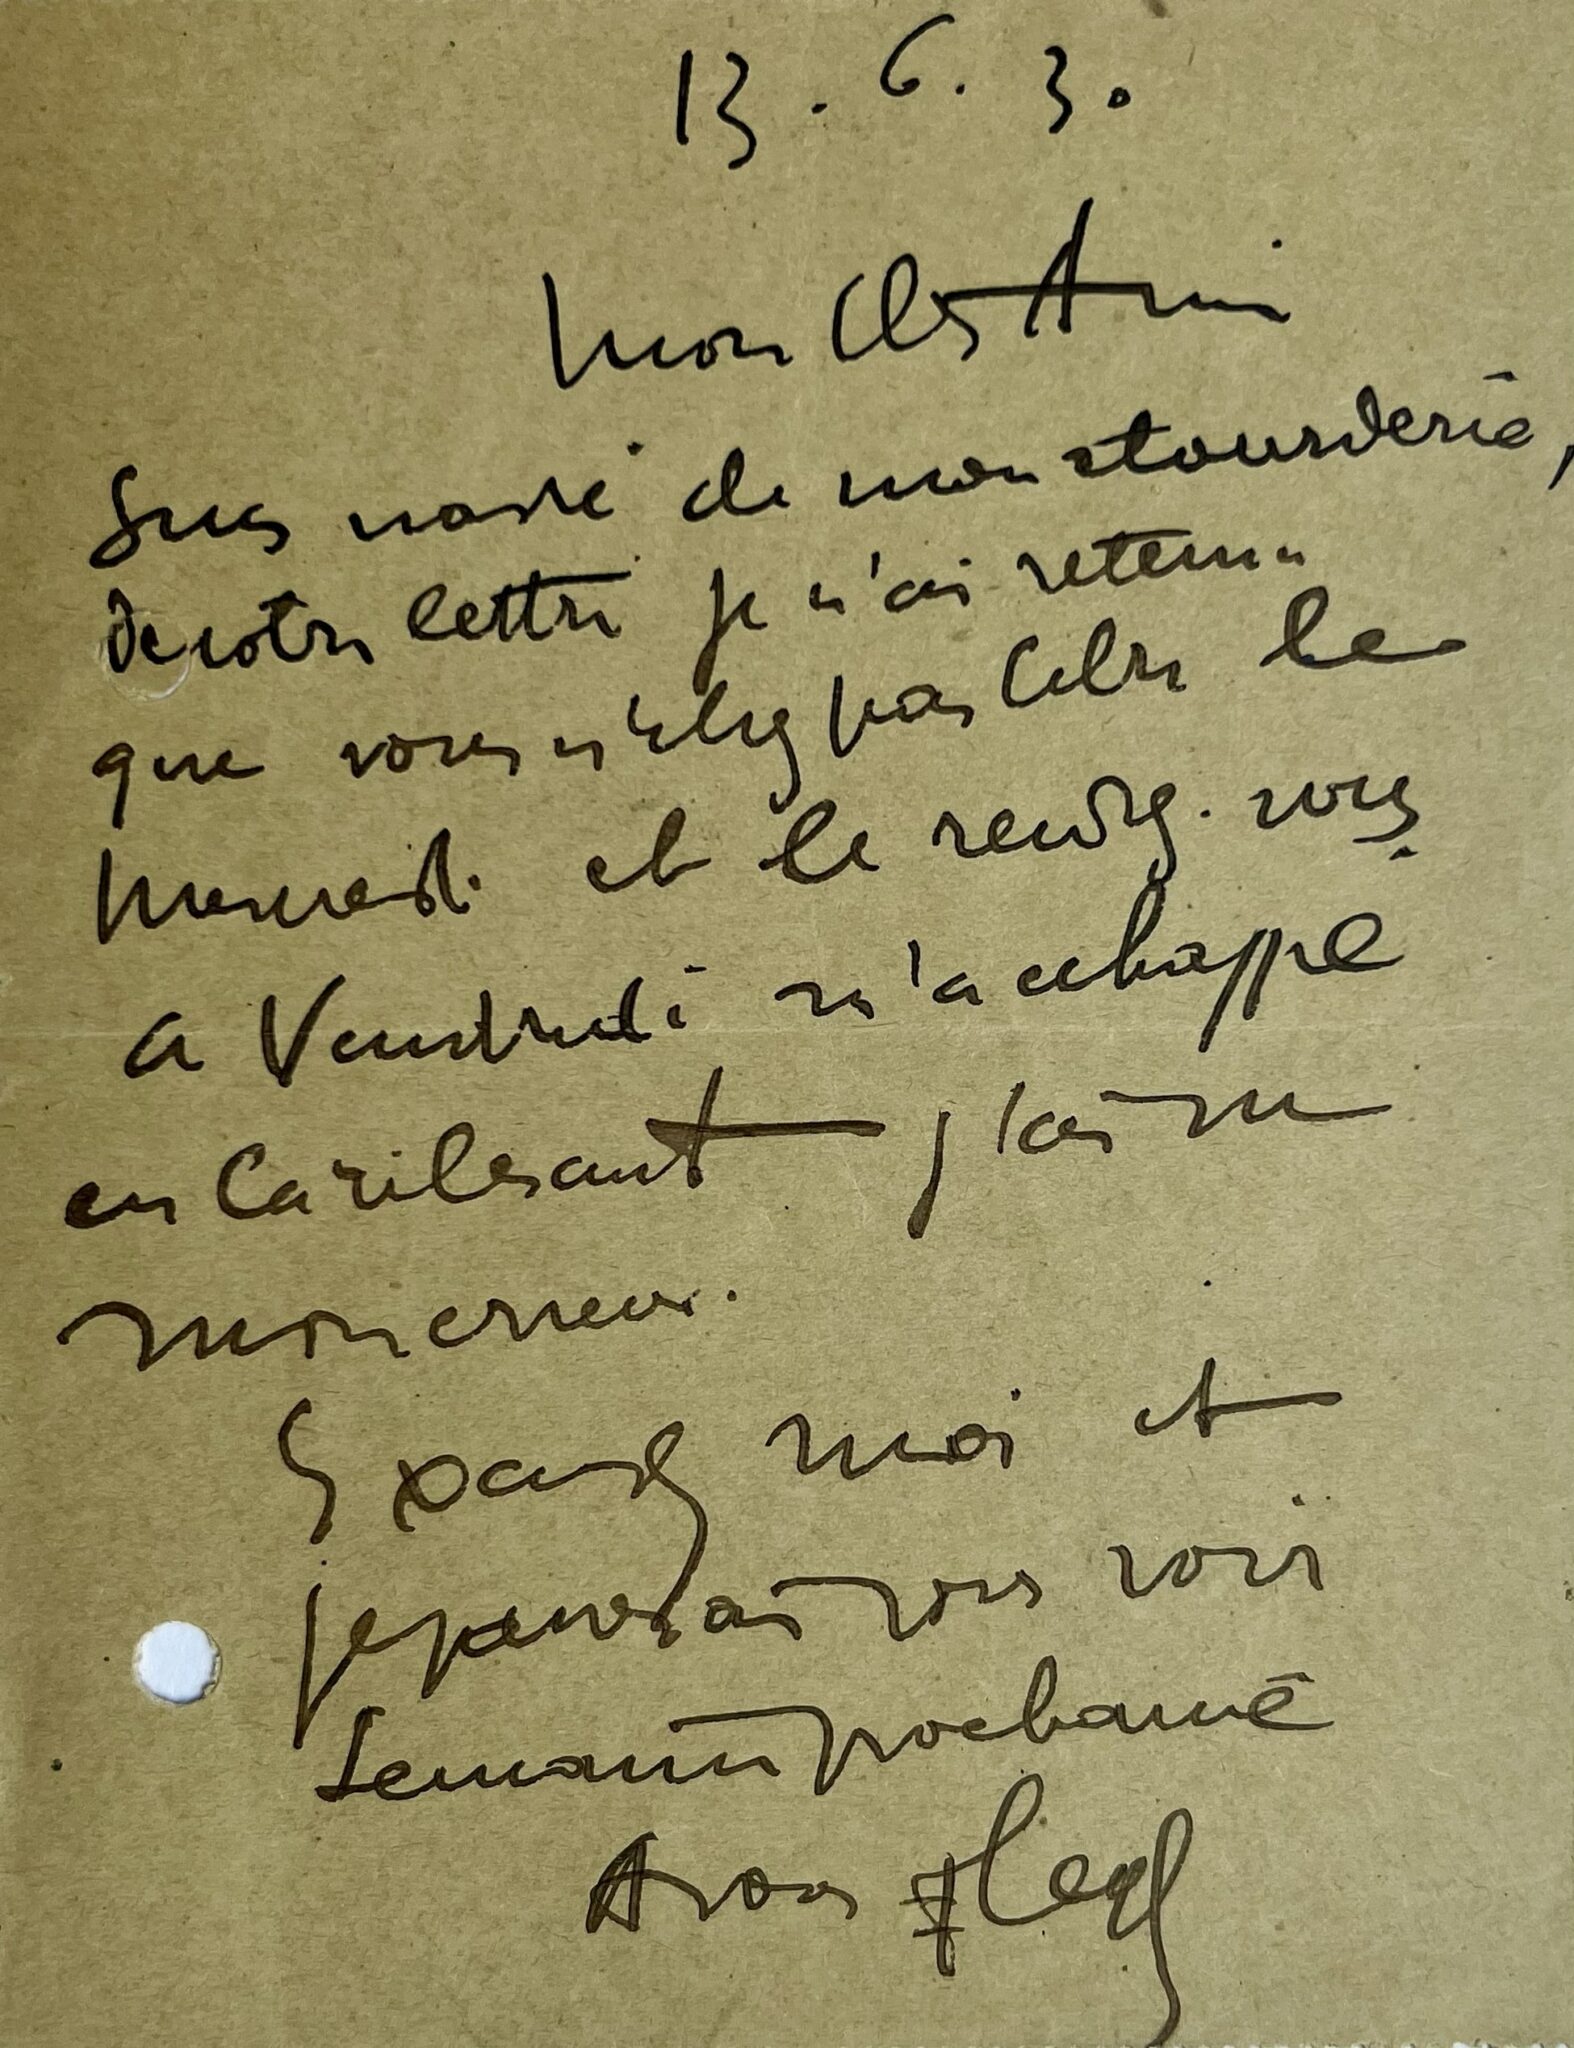 13. 6. 30
Mon Cher Ami
Suis navré de mon etourderie,
de votre lettre je n'ai retenu
que vous n'etiez pas libre le
Mercredi et le rendez-vous
a Vendredi m'a echappé
en la relisant j'ai vu
mon erreur.
Excusez moi et
je passerai vous voir
Semaine prochaine
A vous